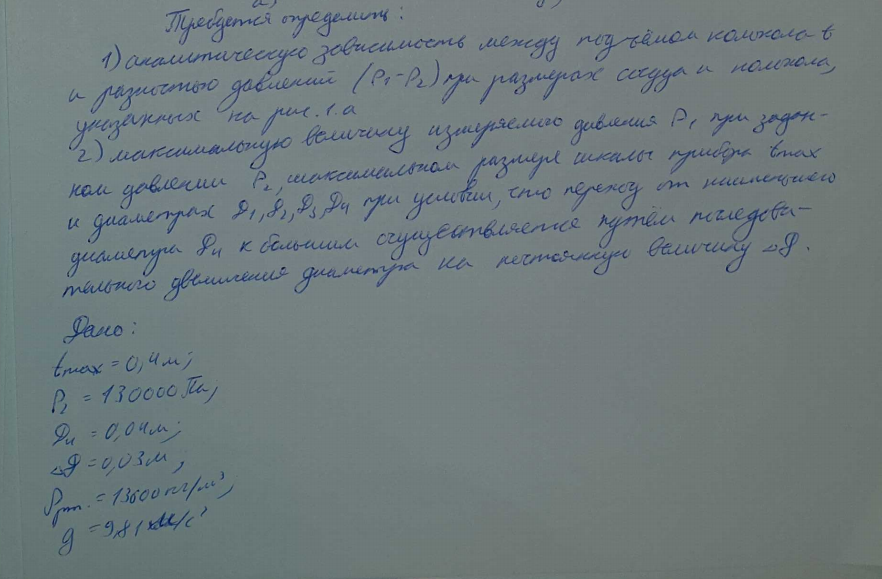 Требуется определить:
1) аналитическую зависимость между подъёмом колокола t
и разностью давлений (P₁-P₂) при размерах сосуда и колокола,
указанных на рис. 1.а
2) максимальную величину измеряемого давления P₁ при задан-
ном давлении P₂, максимальном размере шкалы прибора tmax
и диаметрах D₁, D₂, D₃, D₄ при условии, что переход от наименьшего
диаметра D₄ к большим осуществляется путём последова-
тельного увеличения диаметра на постоянную величину ΔD.
Дано:
tmax = 0,4 м;
P₂ = 130000 Па;
D₄ = 0,04 м;
ΔD = 0,03 м;
ρрт. = 13600 кг/м³;
g = 9,81 м/с²